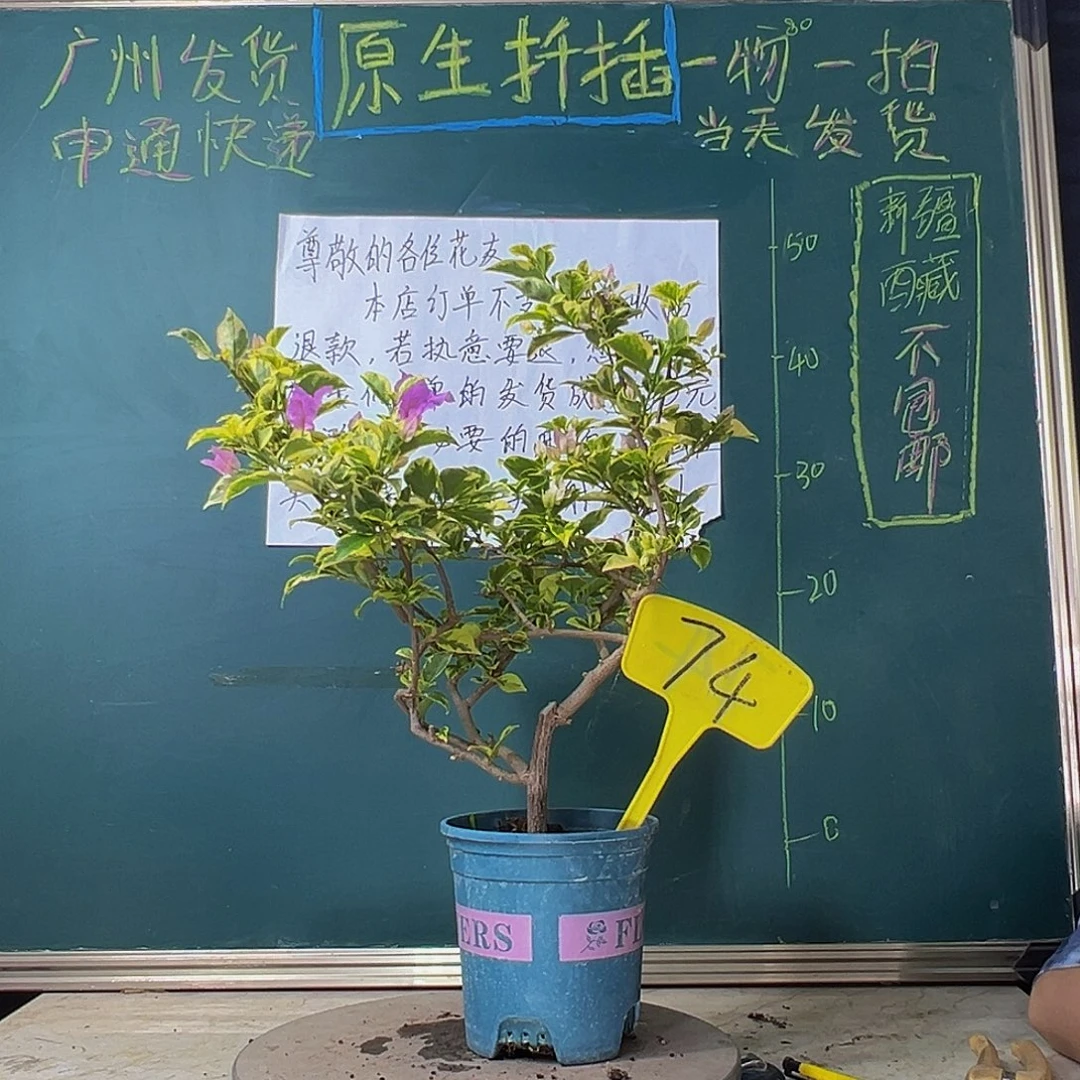 广州发货
申通快递
原生扦插
一物一拍
80
当天发货
新疆
西藏
不
包
邮
50
40
30
20
10
0
尊敬的各位花友
本店订单不 收
退款，若执意要退，
的发货成 元
要的
74
ERS
FL